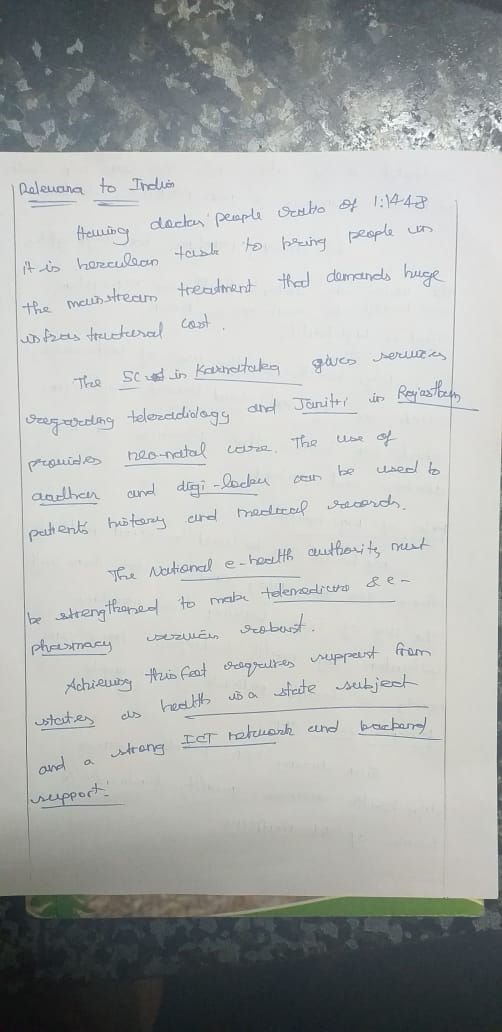 Relevance to India
Having doctor people ratio of 1:1448
it is herculean task to bring people in
the mainstream treatment that demands huge
infrastructural cost.
The SC in Karnataka gives services
regarding teleradiology and Janitri in Rajasthan
provides neo-natal care. The use of
aadhar and digi-locker can be used to
patients history and medical records.
The National e-health authority must
be strengthened to make telemedicine & e-
pharmacy services robust.
Achieving this feat requires support from
states as health is a state subject
and a strong ICT network and backend
support.